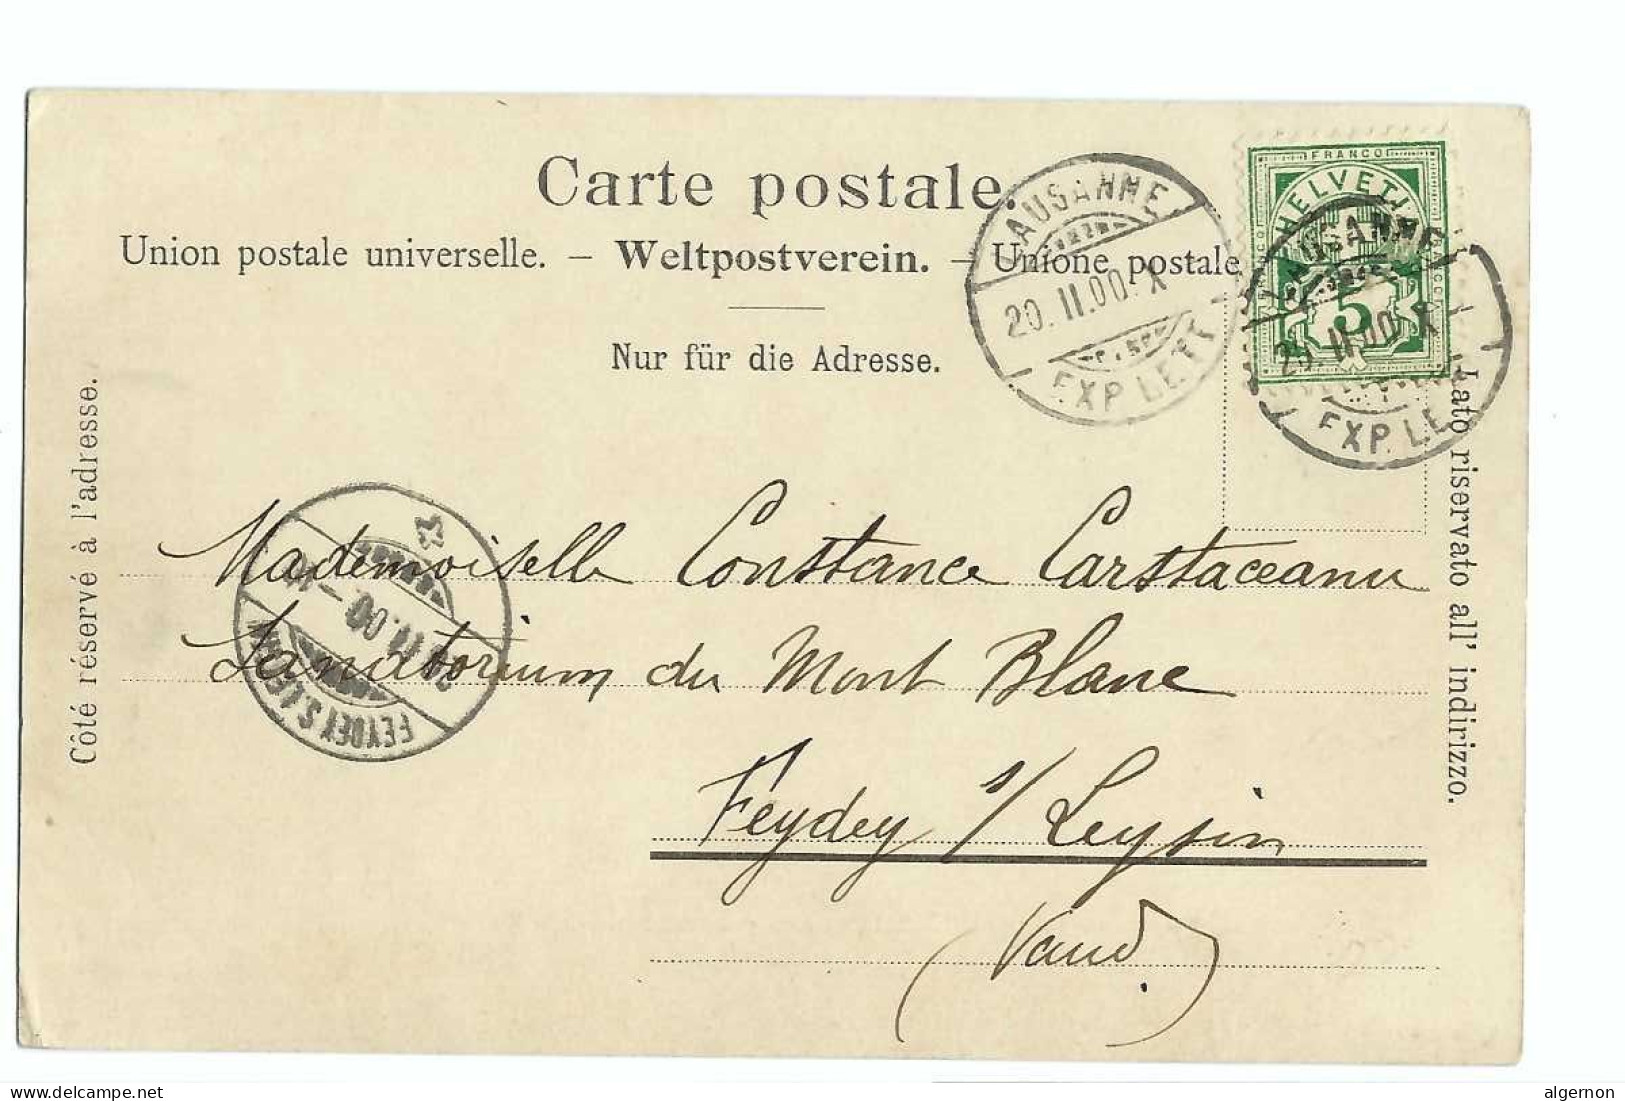 Carte postale.
Union postale universelle. – Weltpostverein. – Unione postale
Nur für die Adresse.
Côté réservé à l'adresse.
Lato riservato all' indirizzo.
LAUSANNE
20.II.00.X
EXP. LETT.
FRANCO
HELVETIA
5
LAUSANNE
20.II.00.X
EXP. LE
Mademoiselle Constance Carstaceanu
Sanatorium du Mont Blanc
Feydey s/ Leysin
(Vaud.)
FEYDEY S. LEYSIN
.11.00.–
www.delcampe.net
algernon